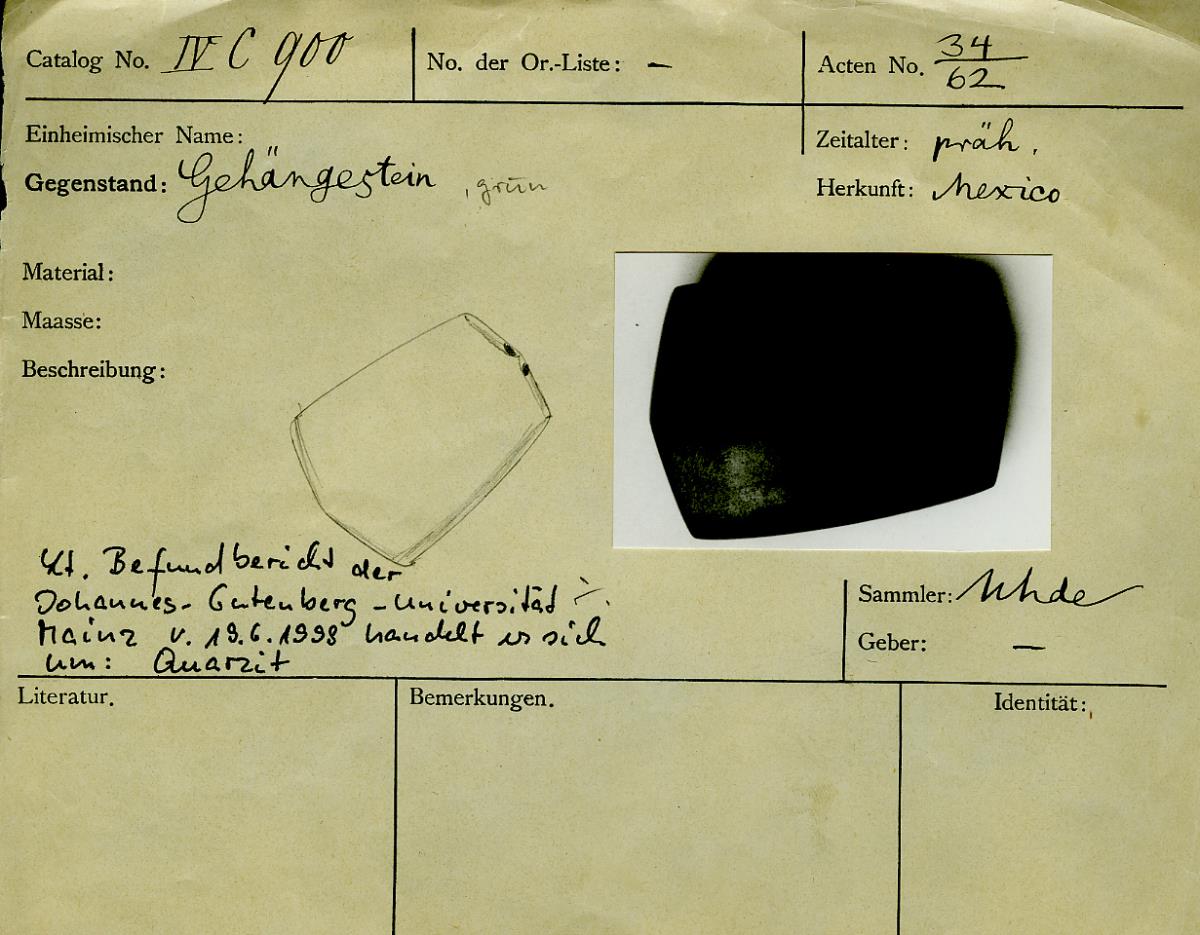 Catalog No. IV C 900
No. der Or.-Liste: —
Acten No. 34/62
Einheimischer Name:
Zeitalter: präh.
Gegenstand: Gehängestein, grün
Herkunft: Mexico
Material:
Maasse:
Beschreibung:
Lt. Befundbericht der
Johannes-Gutenberg-Universität
Mainz v. 19.6.1998 handelt es sich
um: Quarzit
Sammler: Uhde
Geber: —
Literatur.
Bemerkungen.
Identität: